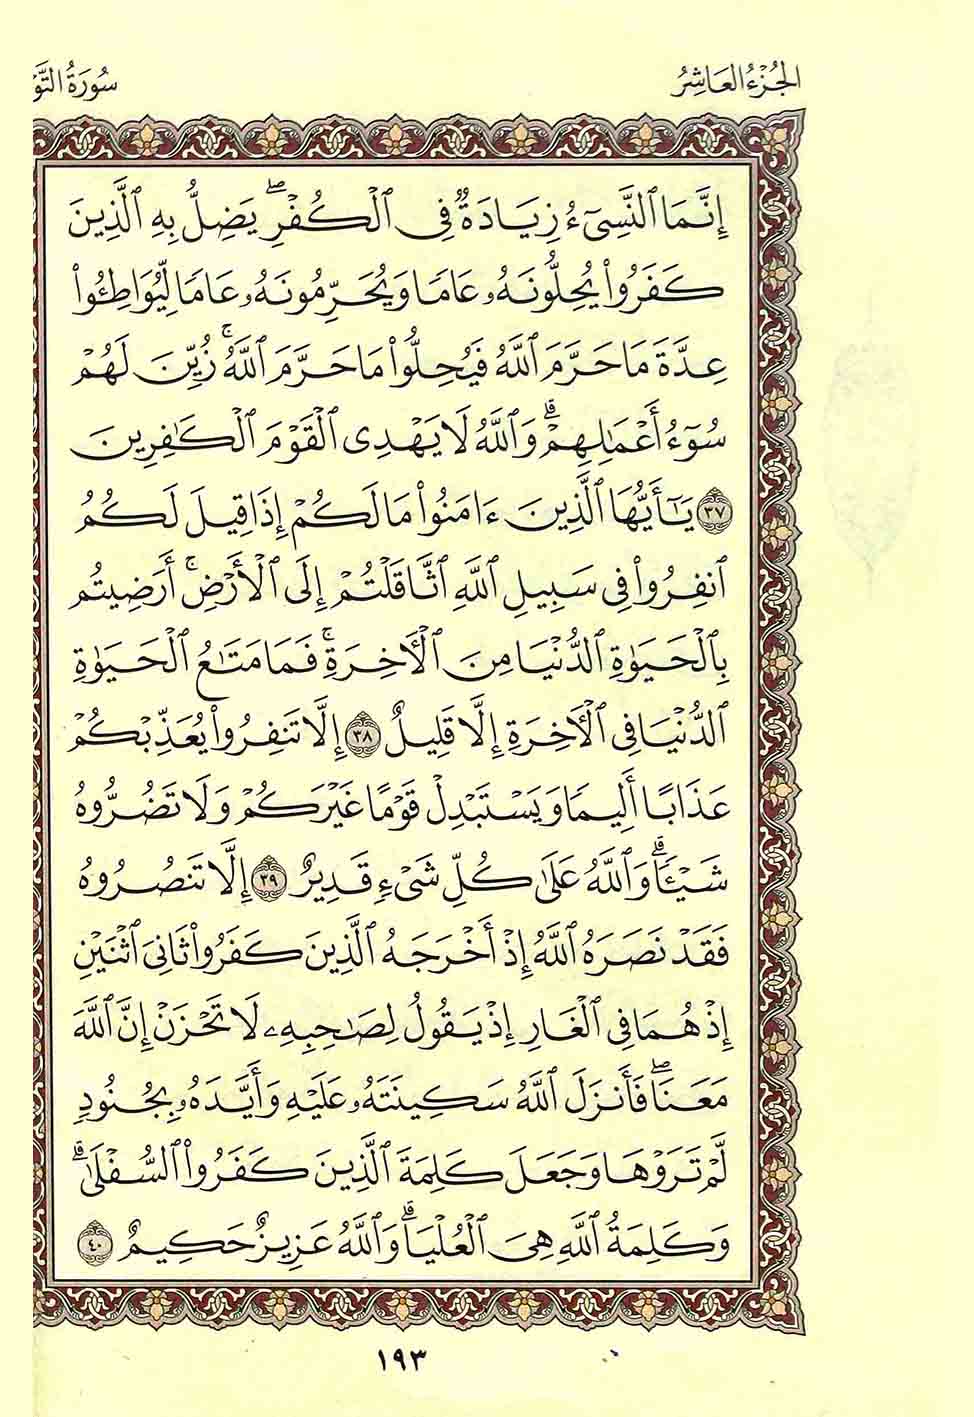 الجُزْءُ العَاشِرُ
سُورَةُ التَّو
إِنَّمَا ٱلنَّسِىٓءُ زِيَادَةٌ فِى ٱلْكُفْرِۖ يُضَلُّ بِهِ ٱلَّذِينَ
كَفَرُوا۟ يُحِلُّونَهُۥ عَامًا وَيُحَرِّمُونَهُۥ عَامًا لِّيُوَاطِـُٔوا۟
عِدَّةَ مَا حَرَّمَ ٱللَّهُ فَيُحِلُّوا۟ مَا حَرَّمَ ٱللَّهُۚ زُيِّنَ لَهُمْ
سُوٓءُ أَعْمَٰلِهِمْۗ وَٱللَّهُ لَا يَهْدِى ٱلْقَوْمَ ٱلْكَٰفِرِينَ
٣٧ يَٰٓأَيُّهَا ٱلَّذِينَ ءَامَنُوا۟ مَا لَكُمْ إِذَا قِيلَ لَكُمُ
ٱنفِرُوا۟ فِى سَبِيلِ ٱللَّهِ ٱثَّاقَلْتُمْ إِلَى ٱلْأَرْضِۚ أَرَضِيتُم
بِٱلْحَيَوٰةِ ٱلدُّنْيَا مِنَ ٱلْأَخِرَةِۚ فَمَا مَتَٰعُ ٱلْحَيَوٰةِ
ٱلدُّنْيَا فِى ٱلْأَخِرَةِ إِلَّا قَلِيلٌ ٣٨ إِلَّا تَنفِرُوا۟ يُعَذِّبْكُمْ
عَذَابًا أَلِيمًا وَيَسْتَبْدِلْ قَوْمًا غَيْرَكُمْ وَلَا تَضُرُّوهُ
شَيْـًٔاۗ وَٱللَّهُ عَلَىٰ كُلِّ شَىْءٍ قَدِيرٌ ٣٩ إِلَّا تَنصُرُوهُ
فَقَدْ نَصَرَهُ ٱللَّهُ إِذْ أَخْرَجَهُ ٱلَّذِينَ كَفَرُوا۟ ثَانِىَ ٱثْنَيْنِ
إِذْ هُمَا فِى ٱلْغَارِ إِذْ يَقُولُ لِصَٰحِبِهِۦ لَا تَحْزَنْ إِنَّ ٱللَّهَ
مَعَنَاۖ فَأَنزَلَ ٱللَّهُ سَكِينَتَهُۥ عَلَيْهِ وَأَيَّدَهُۥ بِجُنُودٍ
لَّمْ تَرَوْهَا وَجَعَلَ كَلِمَةَ ٱلَّذِينَ كَفَرُوا۟ ٱلسُّفْلَىٰۗ
وَكَلِمَةُ ٱللَّهِ هِىَ ٱلْعُلْيَاۗ وَٱللَّهُ عَزِيزٌ حَكِيمٌ ٤٠
١٩٣